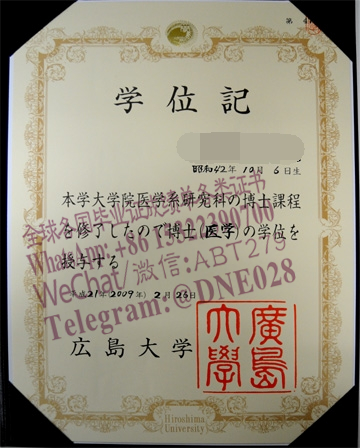 第 4
学位記
昭和42年 10月 6日生
本学大学院医学系研究科の博士課程
を修了したので博士(医学)の学位を
授与する
平成21年(2009年)2月26日
広島大学
廣島
大學
Hiroshima
University
全球各国毕业证成绩单各类证书
WeChat/微信:ABT275
Telegram:@DNE028